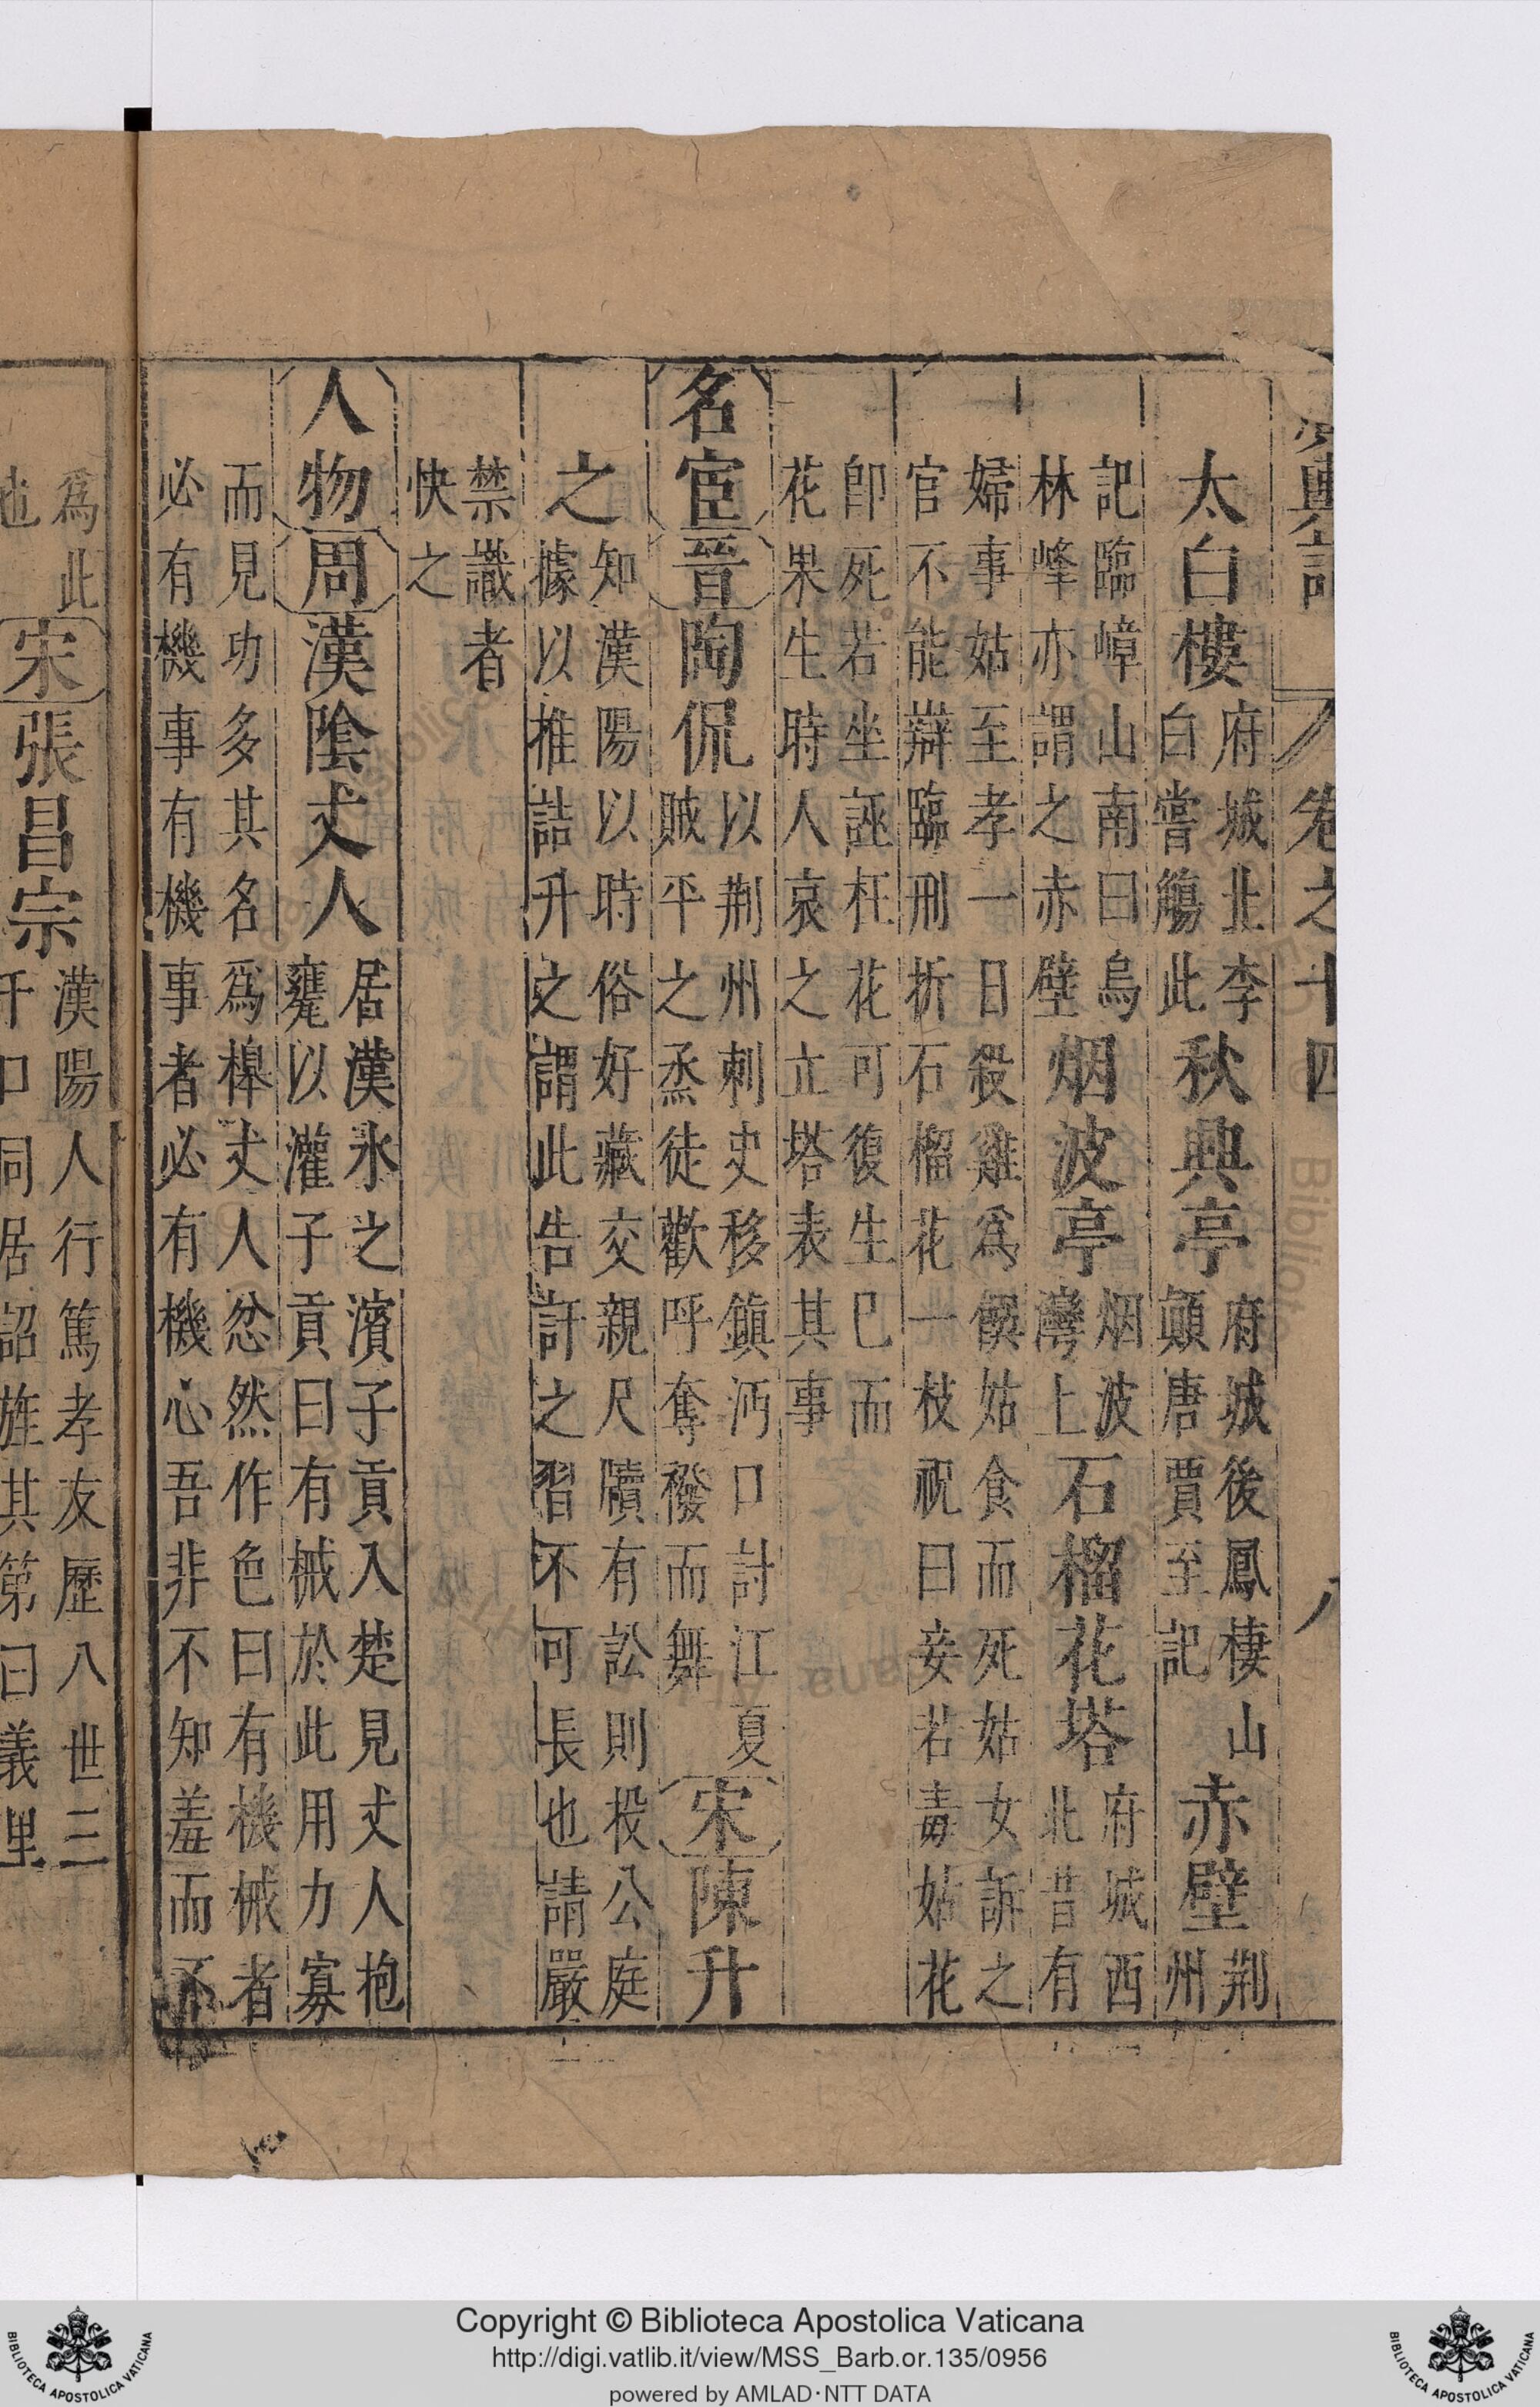 輿記 卷之十四 八
太白樓府城北李白嘗觴此秋興亭府城後鳳棲山顛唐賈至記赤壁荆州
記臨嶂山南曰烏林峰亦謂之赤壁烟波亭烟波灣上石榴花塔府城西北昔有
婦事姑至孝一日殺雞爲饌姑食而死姑女訴之官不能辯臨刑折石榴花一枝祝曰妾若毒姑花
卽死若坐誣枉花可復生已而花果生時人哀之立塔表其事
名宦晉陶侃以荆州刺史移鎮沔口討江夏賊平之烝徒歡呼奪襏而舞宋陳升
之知漢陽以時俗好藏交親尺牘有訟則投公庭據以推詰升之謂此告訐之習不可長也請嚴
禁識者快之
人物周漢陰丈人居漢水之濱子貢入楚見丈人抱甕以灌子貢曰有械於此用力寡
而見功多其名爲槹丈人忿然作色曰有機械者必有機事有機事者必有機心吾非不知羞而不
爲此也宋張昌宗漢陽人行篤孝友歷八世三千口同居詔旌其第曰義里
Copyright © Biblioteca Apostolica Vaticana
http://digi.vatlib.it/view/MSS_Barb.or.135/0956
powered by AMLAD·NTT DATA
BIBLIOTECA APOSTOLICA VATICANA
BIBLIOTECA APOSTOLICA VATICANA